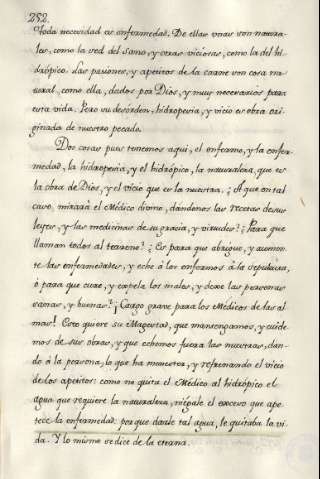 252.
Toda necesidad es enfermedad. De ellas unas son natura-
les, como la sed del sano, y otras viciosas, como la del hi-
drópico. Las pasiones, y apetitos de la carne son cosa na-
tural, como ella, dados por Dios, y muy necesarios para
esta vida. Pero su desórden, hidropesia, y vicio es obra ori-
ginada de nuestro pecado.
Dos cosas pues tenemos aqui, el enfermo, y la enfer-
medad, la hidropesia, y el hidrópico, la naturaleza, que es
la obra de Dios, y el vicio que es la nuestra. ¿A que en tal
caso, mirará el Médico divino, dandonos las recetas de sus
leyes, y las medicinas de su gracia, y virtudes? ¿Para que
llaman todos al
¿Es para que abrigue, y aumen-
te las enfermedades, y eche à los enfermos à la sepultura,
ò para que cure, y expela los males, y dexe las personas
sanas, y buenas? ¡Cargo grave para los Médicos de las al-
mas! Esto quiere su Magestad, que mantengamos, y cuide-
mos de sus obras, y que echemos fuera las nuestras, dan-
do à la persona, lo que ha menester, y refrenando el vicio
de los apetitos: como no quita el Médico al hidrópico el
agua que requiere la naturaleza, niégale el exceso que ape-
tece la enfermedad, porque darle tal agua, le quitaba la vi-
da. Y lo mismo se dice de la eterna.